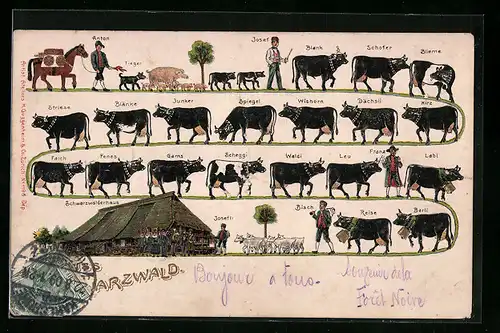 Anton
Tieger
Josef
Blank
Schofer
Blieme
Striem
Blänke
Junker
Spiegel
Wishorn
Dächsli
Hirz
Falch
Fenes
Gams
Scheggi
Waldi
Leu
Franz
Läbi
Schwarzwälderhaus
Josefli
Blasch
Reise
Bertl
ARZWALD.
Bonjour a tous.
Souvenir de la
Forêt Noire